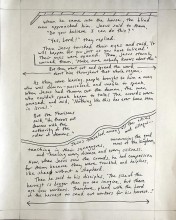 When he came into the house, the blind
men approached him. Jesus said to them,
"Do you believe I can do this?"
"Yes, Lord!" they replied.
Then Jesus touched their eyes and said, "It
will happen for you just as you have believed."
Their eyes were opened. Then Jesus sternly
warned them, "Make sure nobody knows about this."
But they went out and spread the word
about him throughout that whole region.
As they were leaving people brought to him a man
who was demon-possessed and unable to speak.
When Jesus had thrown out the demon, the man
who couldn't speak began to talk. The crowds were
amazed, and said, "Nothing like this has ever been
seen in Israel!"
But the Pharisees
said, "He throws out
demons with the
authority of the
ruler of demons."
Jesus traveled
announcing the good
news of the kingdom,
teaching in their synagogues,
and healing every disease and every sickness.
Now when Jesus saw the crowds, he had compassion
for them because they were troubled and helpless,
like sheep without a shepherd.
Then he said to his disciples, "The size of the
harvest is bigger than you can imagine, but there
are few workers. Therefore, plead with the Lord
of the harvest to send out workers for his harvest."